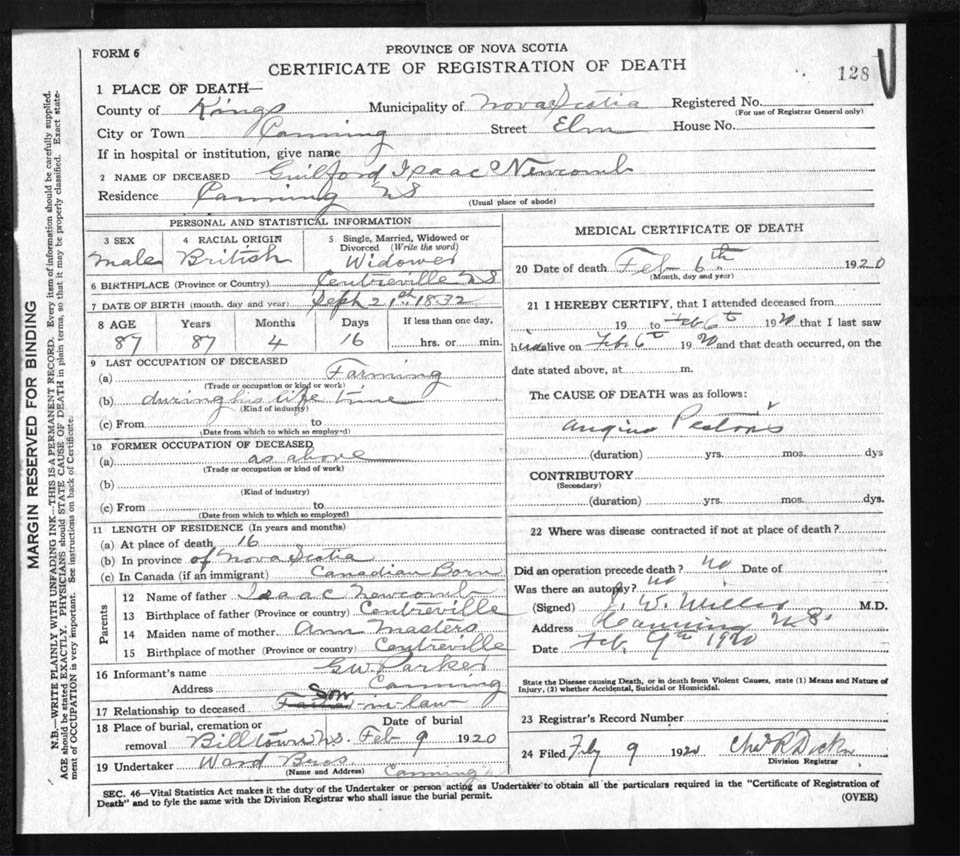 FORM 6
PROVINCE OF NOVA SCOTIA
CERTIFICATE OF REGISTRATION OF DEATH
128
1 PLACE OF DEATH—
County of Kings Municipality of Nova Scotia Registered No.
(For use of Registrar General only)
City or Town Canning Street Elm House No.
If in hospital or institution, give name
2 NAME OF DECEASED Guilford Isaac Newcomb
Residence Canning NS
(Usual place of abode)
PERSONAL AND STATISTICAL INFORMATION
3 SEX
Male
4 RACIAL ORIGIN
British
5 Single, Married, Widowed or
Divorced (Write the word)
Widower
6 BIRTHPLACE (Province or Country) Centreville NS
7 DATE OF BIRTH (month, day and year) Sept 21st 1832
8 AGE Years Months Days If less than one day,
87 87 4 16 hrs. or min.
9 LAST OCCUPATION OF DECEASED
(a) Farming
(Trade or occupation or kind or work)
(b) during his life time
(Kind of industry)
(c) From to
(Date from which to which so employed)
10 FORMER OCCUPATION OF DECEASED
(a) as above
(Trade or occupation or kind of work)
(b)
(Kind of industry)
(c) From to
(Date from which to which so employed)
11 LENGTH OF RESIDENCE (In years and months)
(a) At place of death 16
(b) In province of Nova Scotia
(c) In Canada (if an immigrant) Canadian Born
Parents
12 Name of father Isaac Newcomb
13 Birthplace of father (Province or country) Centreville
14 Maiden name of mother Ann Masters
15 Birthplace of mother (Province or country) Centreville
16 Informant's name G W Parker
Address Canning
Son
17 Relationship to deceased Father-in-law
18 Place of burial, cremation or Date of burial
removal Billtown NS. Feb 9 1920
19 Undertaker Ward Bros Canning
(Name and Address)
MEDICAL CERTIFICATE OF DEATH
20 Date of death Feb 6th 1920
(Month, day and year)
21 I HEREBY CERTIFY, that I attended deceased from
19 to Feb 6th 1920 that I last saw
him alive on Feb 6th 1920 and that death occurred, on the
date stated above, at m.
The CAUSE OF DEATH was as follows:
Angina Pectoris
(duration) yrs. mos. dys
CONTRIBUTORY
(Secondary)
(duration) yrs. mos. dys.
22 Where was disease contracted if not at place of death?
Did an operation precede death? no Date of
Was there an autopsy? no
(Signed) J. W. Miller M.D.
Address Canning N.S.
Date Feb 9th 1920
State the Disease causing Death, or in death from Violent Causes, state (1) Means and Nature of
Injury, (2) whether Accidental, Suicidal or Homicidal.
23 Registrar's Record Number
24 Filed Feby 9 1920
Division Registrar
SEC. 46—Vital Statistics Act makes it the duty of the Undertaker or person acting as Undertaker to obtain all the particulars required in the "Certificate of Registration of
Death" and to fyle the same with the Division Registrar who shall issue the burial permit.
(OVER)
MARGIN RESERVED FOR BINDING
N.B.—WRITE PLAINLY WITH UNFADING INK—THIS IS A PERMANENT RECORD. Every item of information should be carefully supplied.
AGE should be stated EXACTLY. PHYSICIANS should STATE CAUSE OF DEATH in plain terms, so that it may be properly classified. Exact state-
ment of OCCUPATION is very important. See instructions on back of Certificate.